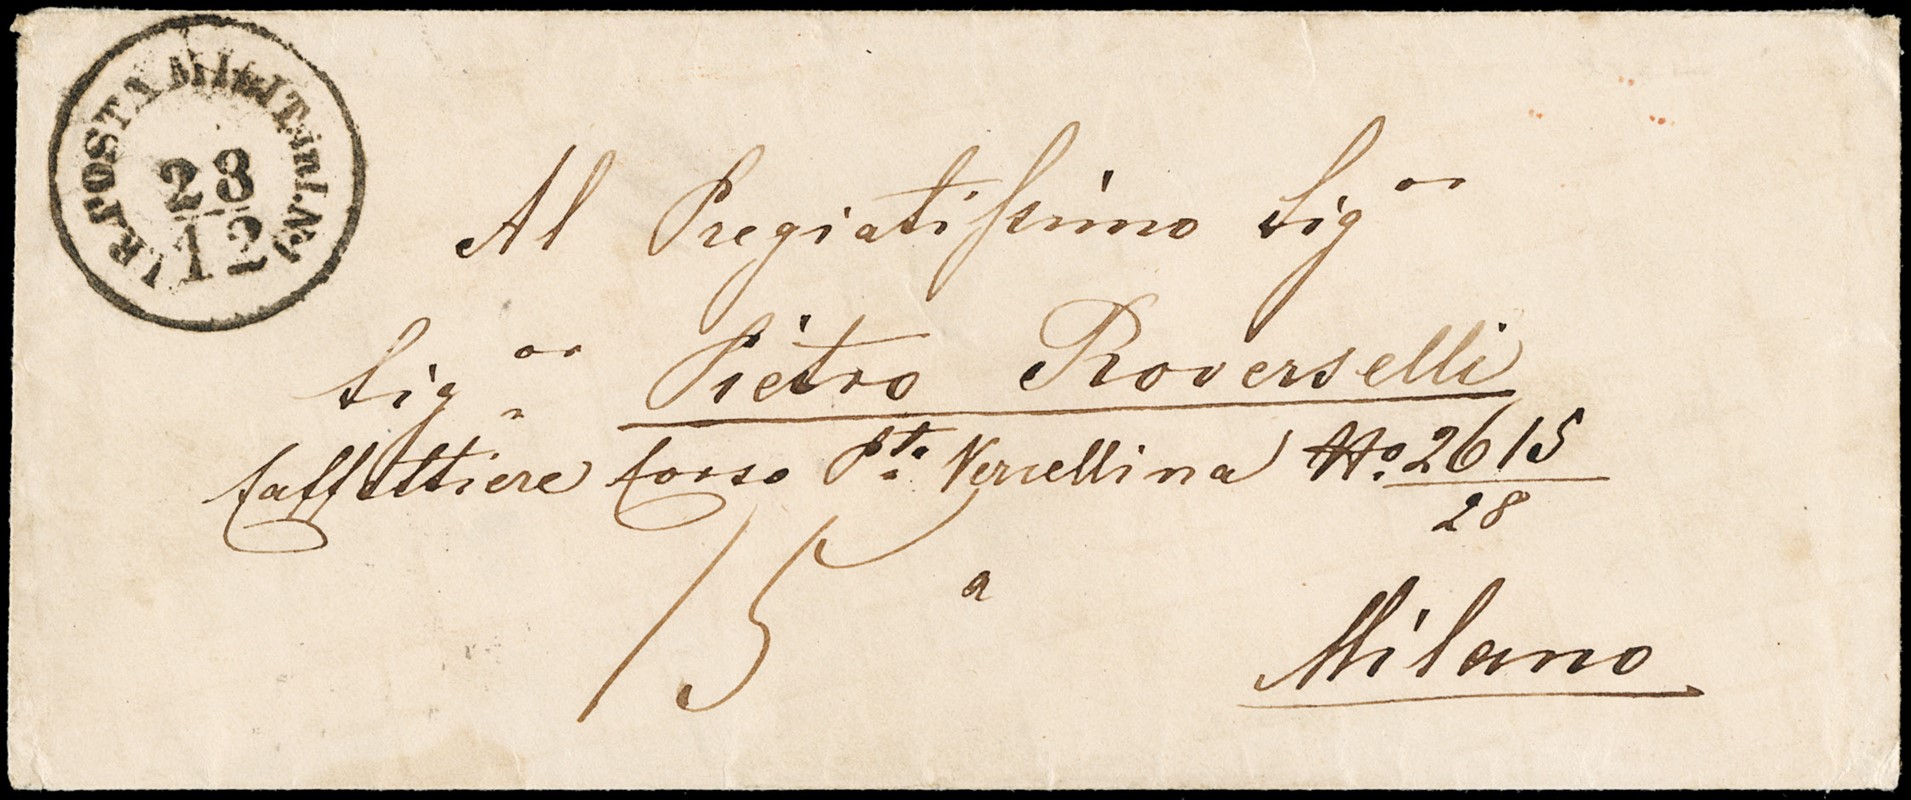 I.R. POSTA MILIT. in I. N.1
23
12
Al Pregiatissimo Sig.or
Sig.or Pietro Roverselli
Caffettiere Corso P.ta Vercellina No. 2615
28
15
a Milano